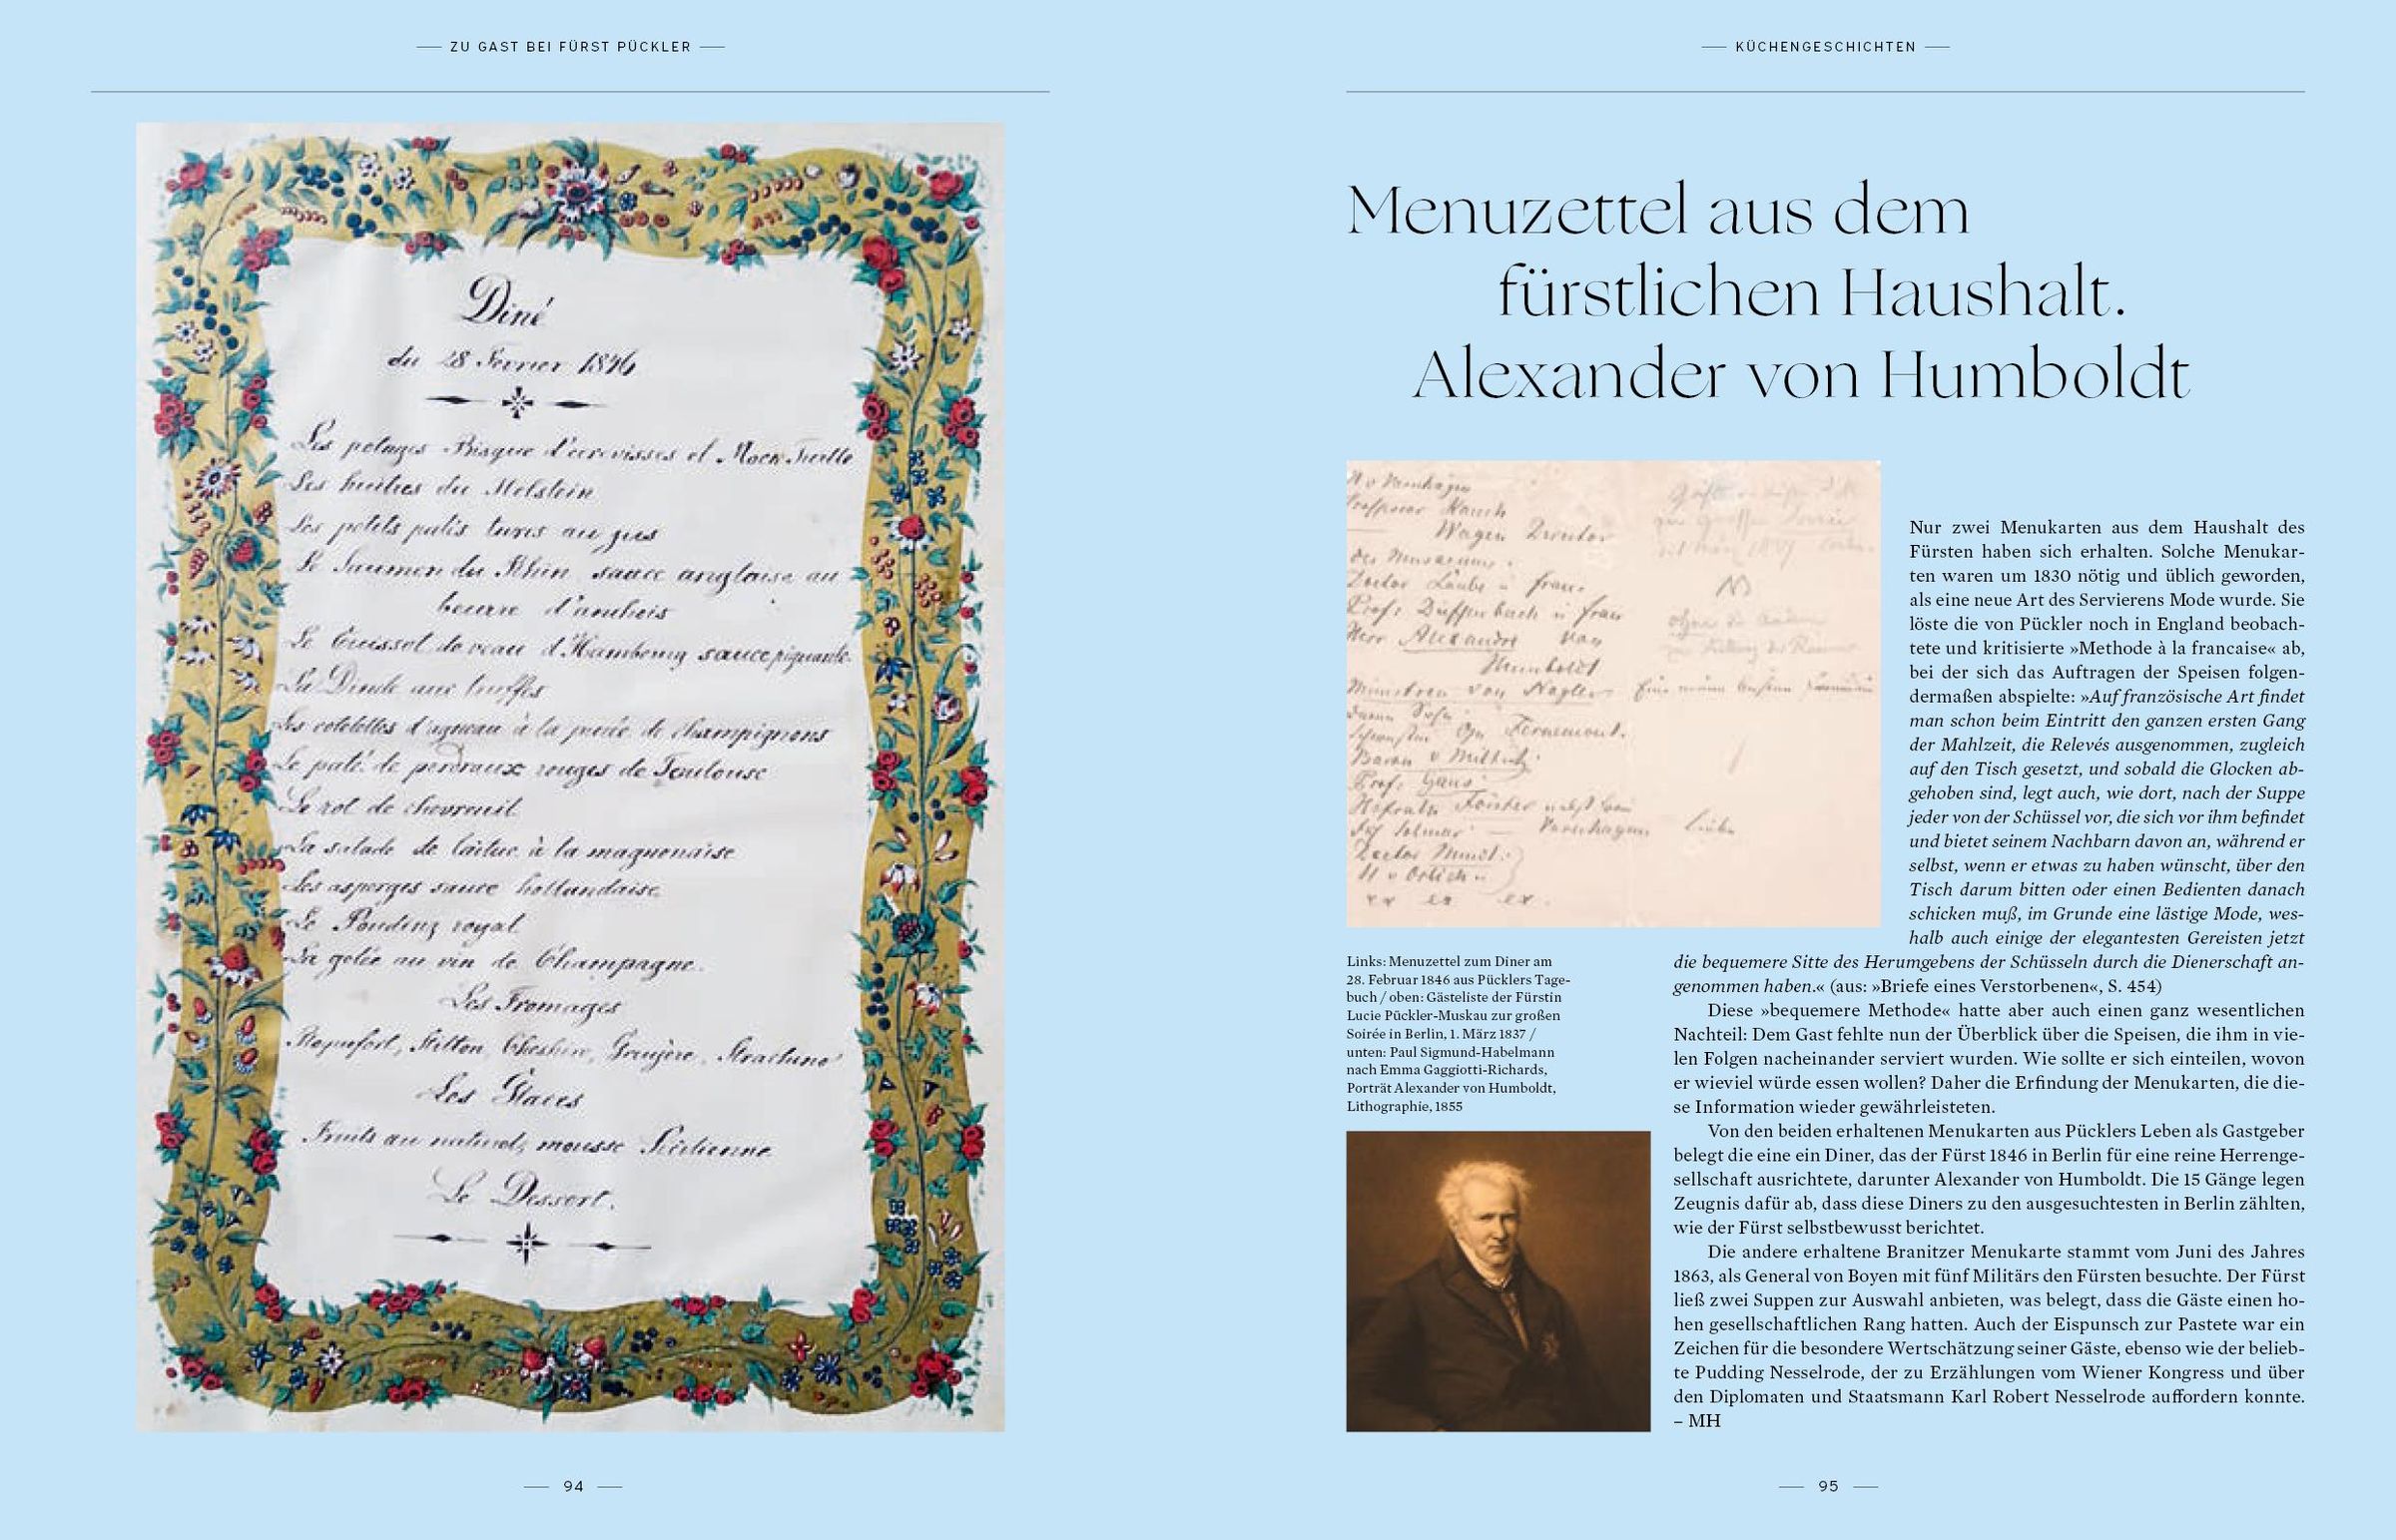 ZU GAST BEI FÜRST PÜCKLER
Diné
du 28 Fevrier 1846
Les potages Bisque d'ecrevisses et Mock Turtle
Les huitres du Holstein
Les petits patés au jus
Le Saumon du Rhin sauce anglaise au
beurre d'anchois
Le Cuissot de veau d'Hambourg sauce piquante
La Dinde aux truffes
Les cotelettes d'agneau à la purée de champignons
Le paté de perdraux rouges de Toulouse
Le rot de chevreuil
La salade de laitue à la magnonaise
Les asperges sauce hollandaise
Le Pouding royal
La gelée au vin de Champagne
Les Fromages
Roquefort, Stilton, Cheshire, Gruyère,
Les Glaces
Fruits au naturel, mousse
Le Dessert.
94
KÜCHENGESCHICHTEN
Menuzettel aus dem
fürstlichen Haushalt.
Alexander von Humboldt
Professor Rauch
Wagen Director
des Museums
Doctor Laube u frau
Prof. Dieffenbach u frau
Herr Alexander von
Humboldt
von Nagler
Baron v
Prof. Gans
Hofrath Förster
Varnhagen
Doctor Mundt
Nur zwei Menukarten aus dem Haushalt des
Fürsten haben sich erhalten. Solche Menukar-
ten waren um 1830 nötig und üblich geworden,
als eine neue Art des Servierens Mode wurde. Sie
löste die von Pückler noch in England beobach-
tete und kritisierte »Methode à la francaise« ab,
bei der sich das Auftragen der Speisen folgen-
dermaßen abspielte: »Auf französische Art findet
man schon beim Eintritt den ganzen ersten Gang
der Mahlzeit, die Relevés ausgenommen, zugleich
auf den Tisch gesetzt, und sobald die Glocken ab-
gehoben sind, legt auch, wie dort, nach der Suppe
jeder von der Schüssel vor, die sich vor ihm befindet
und bietet seinem Nachbarn davon an, während er
selbst, wenn er etwas zu haben wünscht, über den
Tisch darum bitten oder einen Bedienten danach
schicken muß, im Grunde eine lästige Mode, wes-
halb auch einige der elegantesten Gereisten jetzt
die bequemere Sitte des Herumgebens der Schüsseln durch die Dienerschaft an-
genommen haben.« (aus: »Briefe eines Verstorbenen«, S. 454)
Diese »bequemere Methode« hatte aber auch einen ganz wesentlichen
Nachteil: Dem Gast fehlte nun der Überblick über die Speisen, die ihm in vie-
len Folgen nacheinander serviert wurden. Wie sollte er sich einteilen, wovon
er wieviel würde essen wollen? Daher die Erfindung der Menukarten, die die-
se Information wieder gewährleisteten.
Von den beiden erhaltenen Menukarten aus Pücklers Leben als Gastgeber
belegt die eine ein Diner, das der Fürst 1846 in Berlin für eine reine Herrenge-
sellschaft ausrichtete, darunter Alexander von Humboldt. Die 15 Gänge legen
Zeugnis dafür ab, dass diese Diners zu den ausgesuchtesten in Berlin zählten,
wie der Fürst selbstbewusst berichtet.
Die andere erhaltene Branitzer Menukarte stammt vom Juni des Jahres
1863, als General von Boyen mit fünf Militärs den Fürsten besuchte. Der Fürst
ließ zwei Suppen zur Auswahl anbieten, was belegt, dass die Gäste einen ho-
hen gesellschaftlichen Rang hatten. Auch der Eispunsch zur Pastete war ein
Zeichen für die besondere Wertschätzung seiner Gäste, ebenso wie der belieb-
te Pudding Nesselrode, der zu Erzählungen vom Wiener Kongress und über
den Diplomaten und Staatsmann Karl Robert Nesselrode auffordern konnte.
– MH
Links: Menuzettel zum Diner am
28. Februar 1846 aus Pücklers Tage-
buch / oben: Gästeliste der Fürstin
Lucie Pückler-Muskau zur großen
Soirée in Berlin, 1. März 1837 /
unten: Paul Sigmund-Habelmann
nach Emma Gaggiotti-Richards,
Porträt Alexander von Humboldt,
Lithographie, 1855
95